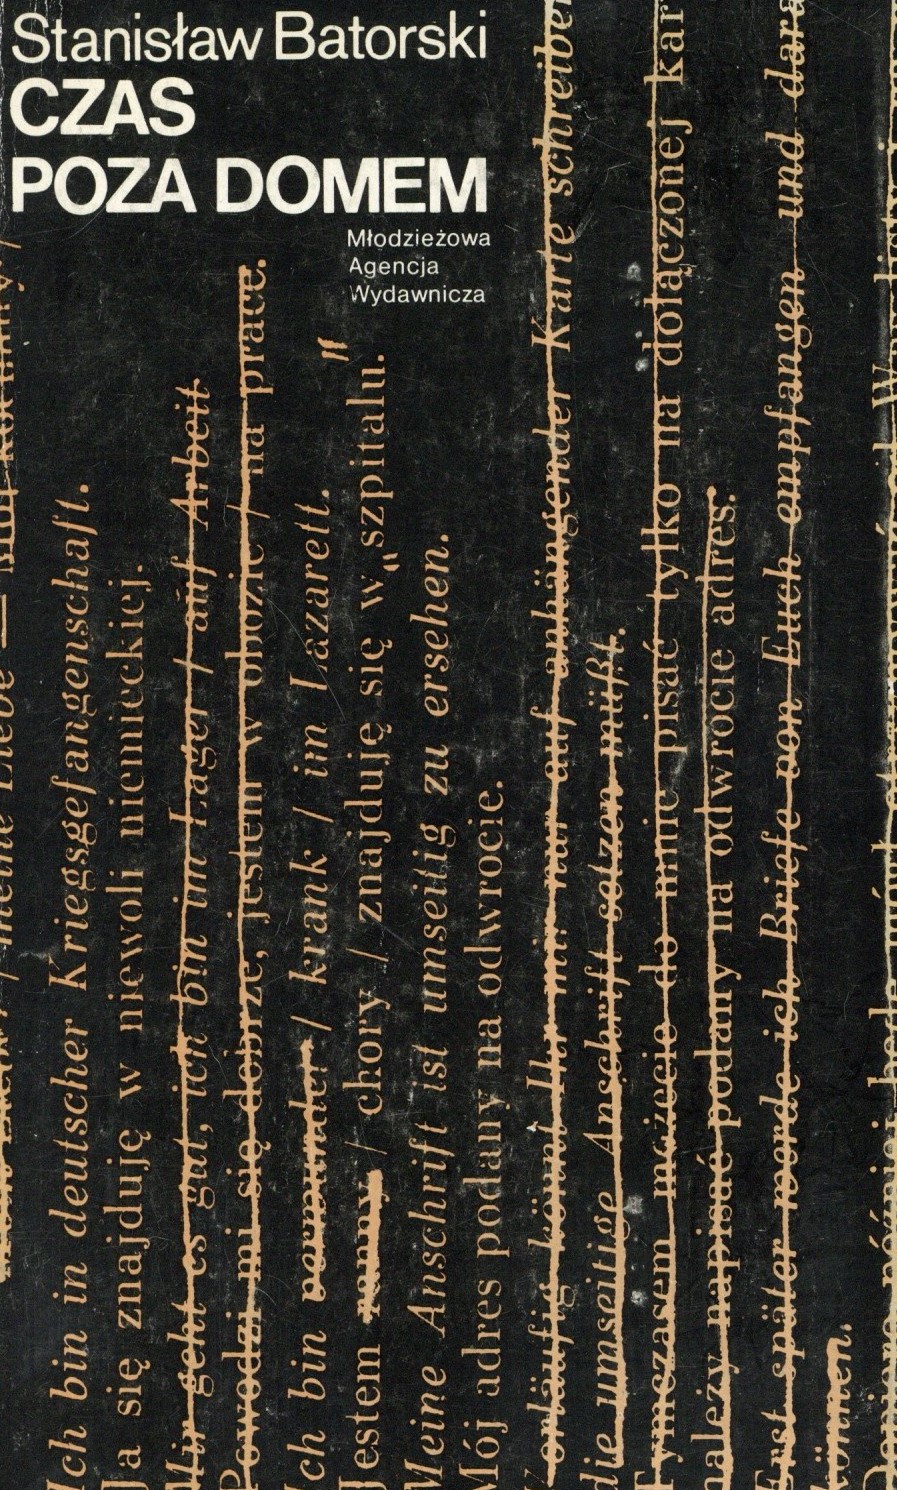 Stanisław Batorski
CZAS
POZA DOMEM
Młodzieżowa
Agencja
Wydawnicza
Ich bin in deutscher Kriegsgefangenschaft.
Ja się znajduję w niewoli niemieckiej.
Mir geht es gut, ich bin im Lager / auf Arbeit
Powodzi mi się dobrze, jestem w obozie / na prace.
Ich bin verwundet / krank / in Lazarett.
Jestem ranny / chory / znajduję się w „szpitalu."
Meine Anschrift ist umseitig zu ersehen.
Mój adres podany na odwrocie.
Vorläufig könnt Ihr mir nur auf anhängender Karte schreiben
die umseitige Anschrift setzen müßt.
Tymczasem możecie do mnie pisać tylko na dołączonej kar
należy napisać podany na odwrocie adres.
Erst später werde ich Briefe von Euch empfangen und dara
können.